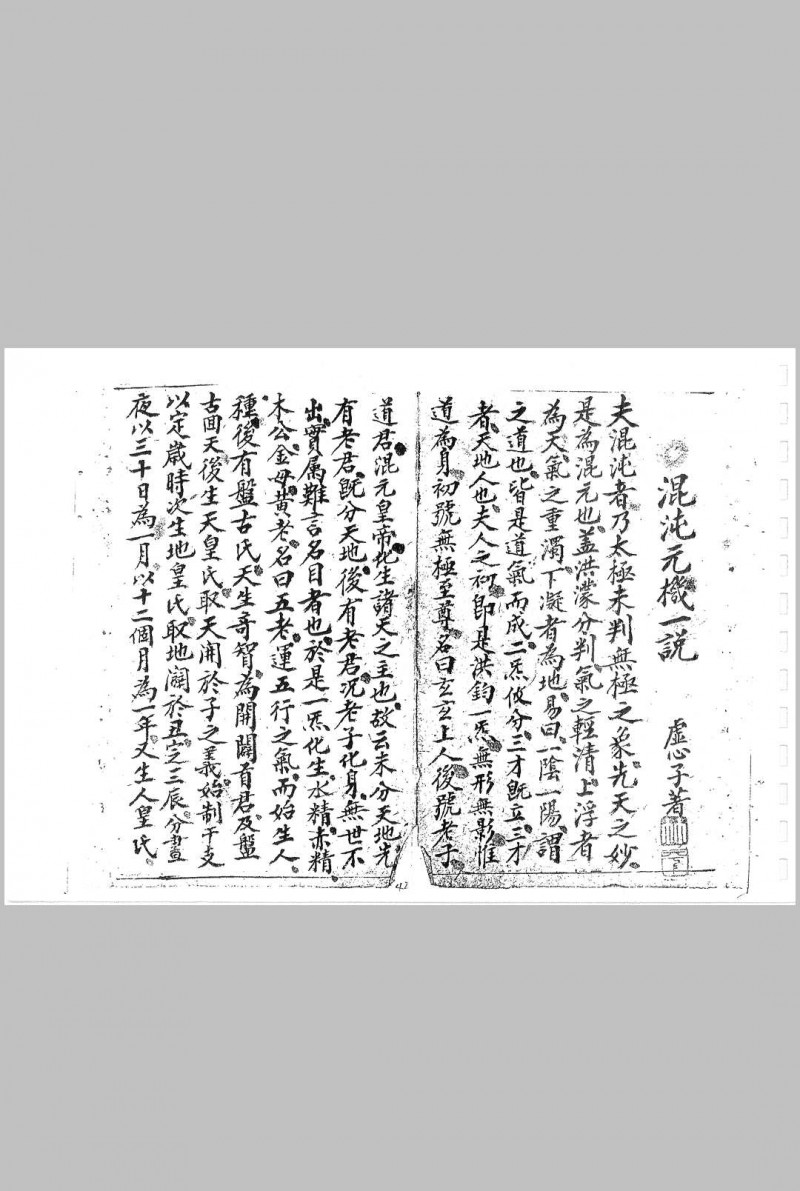 混沌元機一説
虛心子著
夫混沌者乃太極未判無極之象先天之妙
是為混元也蓋洪濛分判氣之輕清上浮者
為天氣之重濁下凝者為地易曰一陰一陽謂
之道也皆是道氣而成二炁攸分三才既立三才
者天地人也夫人之初即是洪鈞一炁無形無影惟
道為身初號無極至尊名曰玄玄上人後號老子
道君混元皇帝化生諸天之主也故云未分天地先
有老君既分天地後有老君况老子化身無世不
出實属難言名目者也於是一炁化生水精赤精
木公金母黄老名曰五老運五行之氣而始生人
種後有盤古氏天生奇智為開闢首君及盤
古靣天後生天皇氏取天開於子之義始制干支
以定歲時次生地皇氏取地闢於丑定三辰分晝
夜以三十日為一月以十二個月為一年又生人皇氏